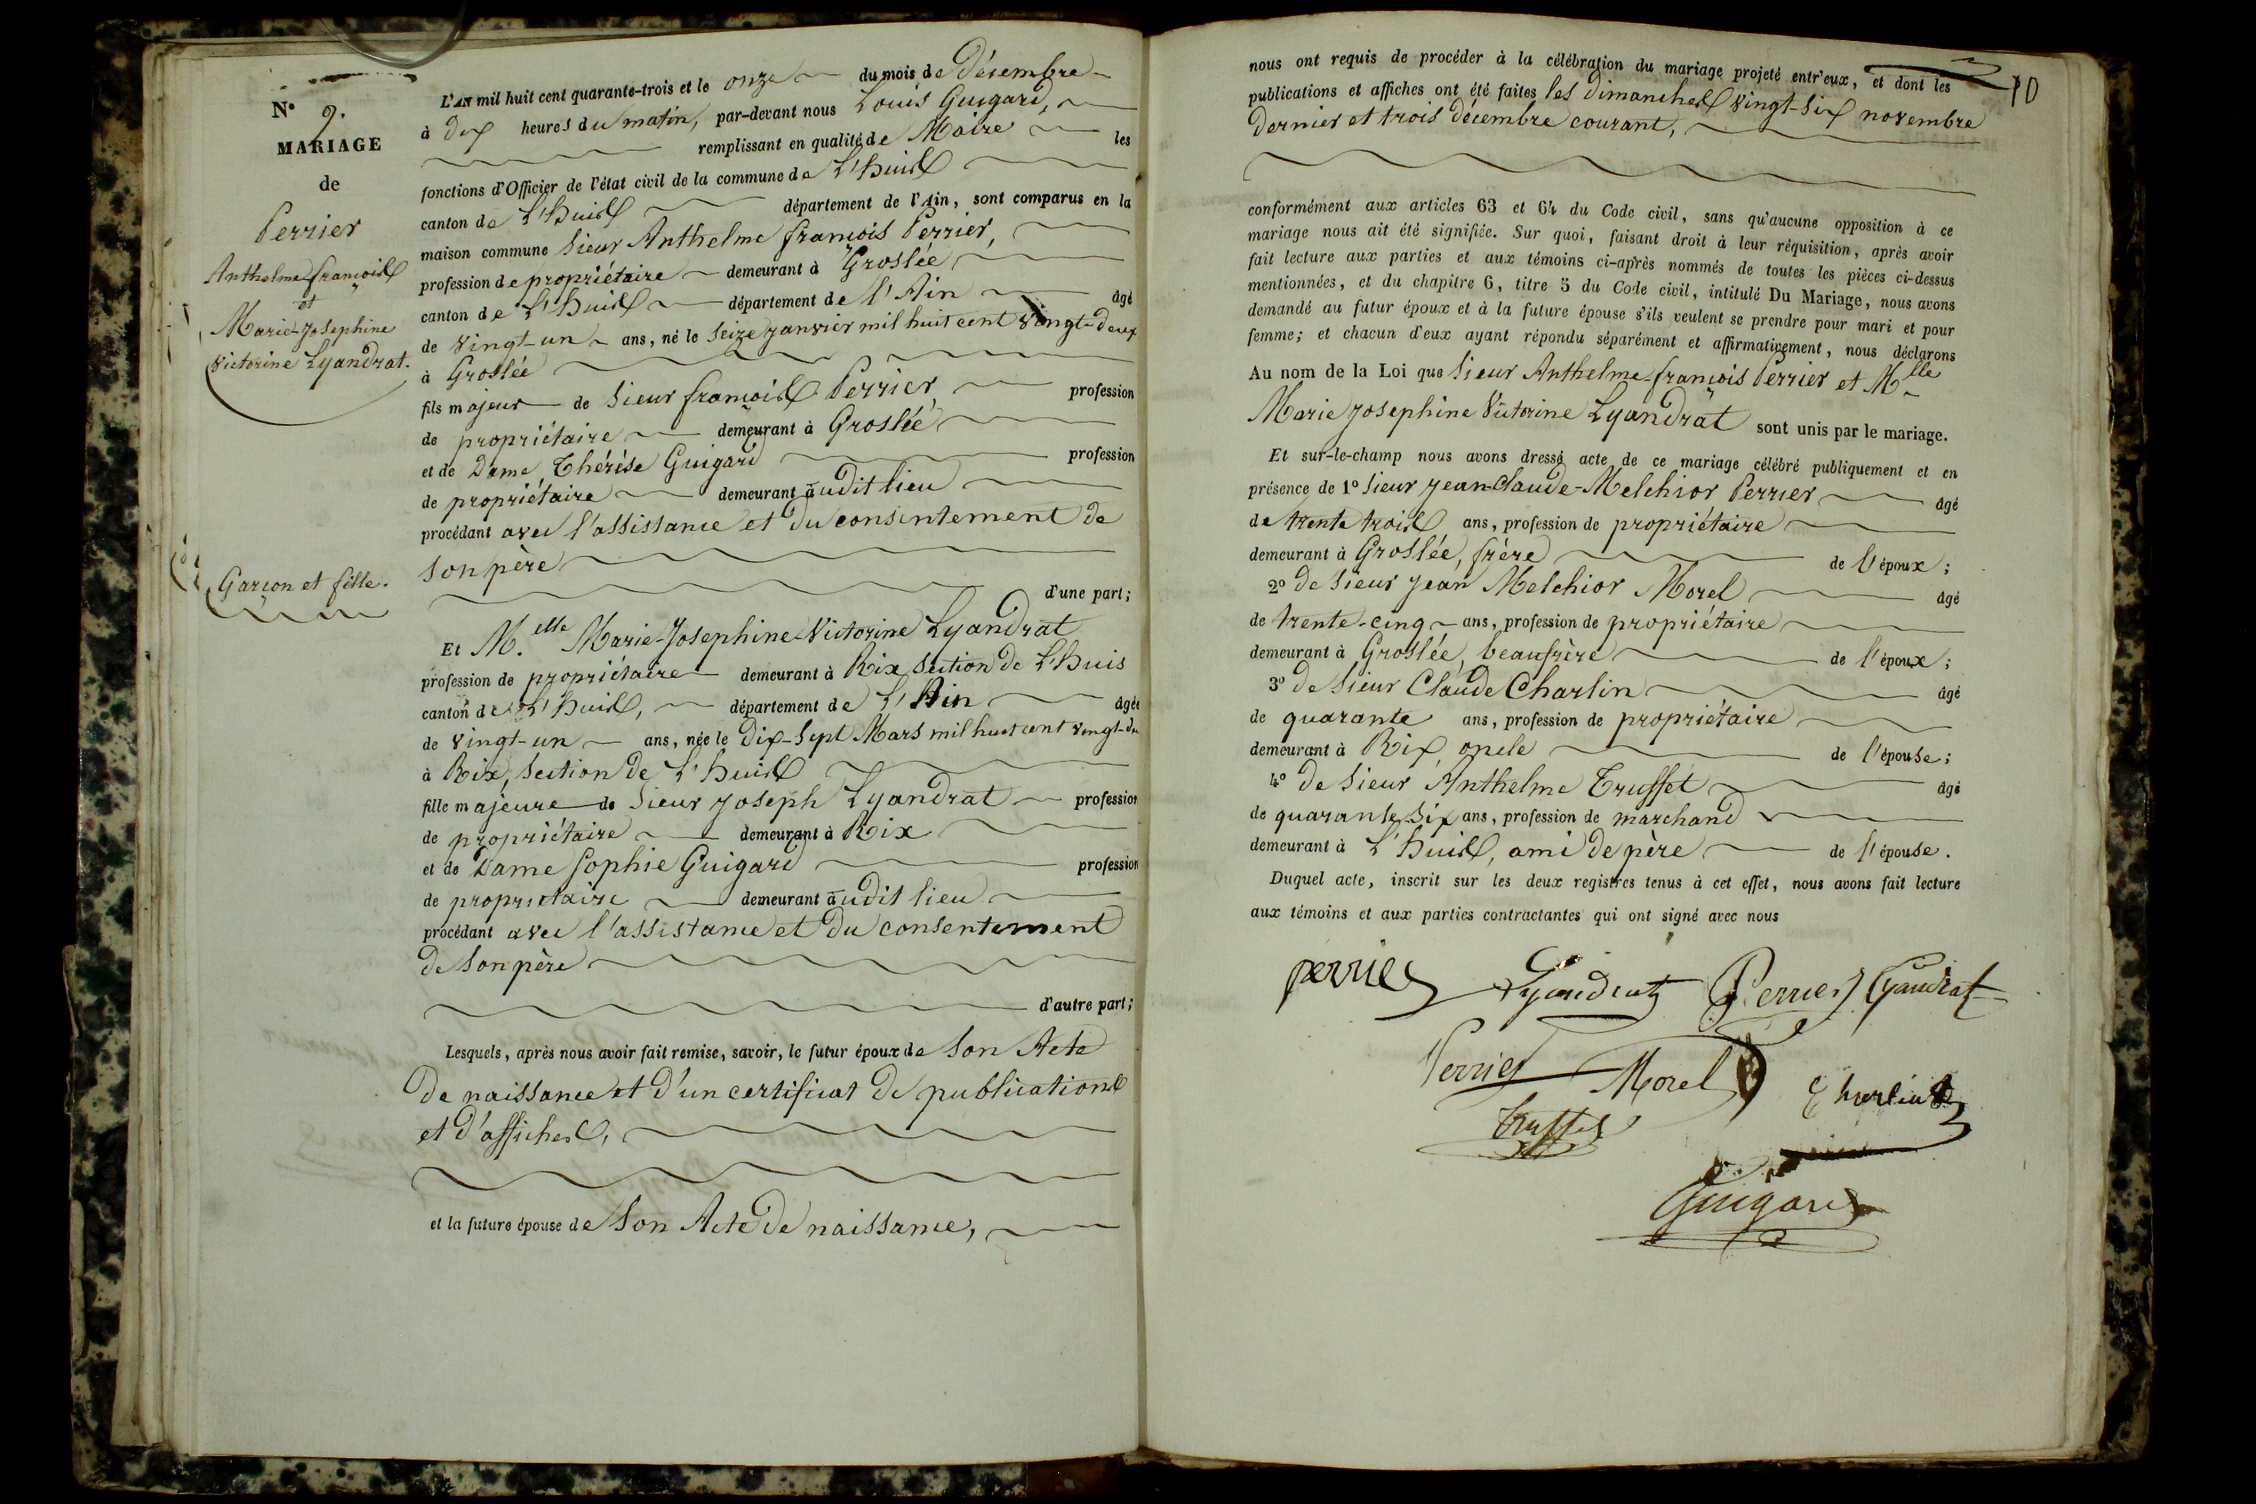 N° 9.
MARIAGE
de
Perrier
Anthelme françois
et
Marie-Josephine
Victorine Lyandrat.
Garçon et fille.
L'an mil huit cent quarante-trois et le onze du mois de Décembre
à dix heures du matin, par-devant nous Louis Guigard,
remplissant en qualité de Maire les
fonctions d'Officier de l'état civil de la commune de L'huis
canton de L'huis département de l'Ain, sont comparus en la
maison commune Sieur Anthelme françois Perrier,
profession de propriétaire demeurant à Groslée
canton de L'huis département de l'Ain âgé
de vingt-un ans, né le Seize janvier mil huit cent vingt-deux
à Groslée
fils majeur de Sieur françois Perrier, profession
de propriétaire demeurant à Groslée
et de Dame Thérèse Guigard profession
de propriétaire demeurant audit lieu
procédant avec l'assistance et du consentement de
Son père
d'une part;
Et M.elle Marie-Josephine-Victorine Lyandrat
profession de propriétaire demeurant à Rix section de L'huis
canton de L'huis, département de L'Ain âgée
de vingt-un ans, née le Dix-Sept Mars mil huit cent vingt-du
à Rix, Section de L'huis
fille majeure de Sieur Joseph Lyandrat profession
de propriétaire demeurant à Rix
et de Dame Sophie Guigard profession
de propriétaire demeurant audit lieu
procédant avec l'assistance et du consentement
de Son père
d'autre part;
Lesquels, après nous avoir fait remise, savoir, le futur époux de Son Acte
De naissance et d'un certificat de publications
et d'affiches,
et la future épouse de Son Acte de naissance,
10
nous ont requis de procéder à la célébration du mariage projeté entr'eux, et dont les
publications et affiches ont été faites les Dimanches vingt-six novembre
dernier et trois décembre courant,
conformément aux articles 63 et 64 du Code civil, sans qu'aucune opposition à ce
mariage nous ait été signifiée. Sur quoi, faisant droit à leur réquisition, après avoir
fait lecture aux parties et aux témoins ci-après nommés de toutes les pièces ci-dessus
mentionnées, et du chapitre 6, titre 5 du Code civil, intitulé Du Mariage, nous avons
demandé au futur époux et à la future épouse s'ils veulent se prendre pour mari et pour
femme; et chacun d'eux ayant répondu séparément et affirmativement, nous déclarons
Au nom de la Loi que Sieur Anthelme-françois Perrier et Mlle
Marie Josephine Victorine Lyandrat sont unis par le mariage.
Et sur-le-champ nous avons dressé acte de ce mariage célébré publiquement et en
présence de 1° Sieur Jean-Claude-Melchior Perrier âgé
de trente trois ans, profession de propriétaire
demeurant à Groslée, frère de l'époux;
2° de Sieur Jean Melchior Morel âgé
de trente-cinq ans, profession de propriétaire
demeurant à Groslée, beaufrère de l'époux;
3° de Sieur Claude Charlin âgé
de quarante ans, profession de propriétaire
demeurant à Rix, oncle de l'épouse;
4° de Sieur Anthelme Truffet âgé
de quarante Six ans, profession de marchand
demeurant à L'huis, ami de père de l'épouse.
Duquel acte, inscrit sur les deux registres tenus à cet effet, nous avons fait lecture
aux témoins et aux parties contractantes qui ont signé avec nous
perrier Lyandrat Perrier Lyandrat
Perrier Morel Charlin
Truffet
Guigard